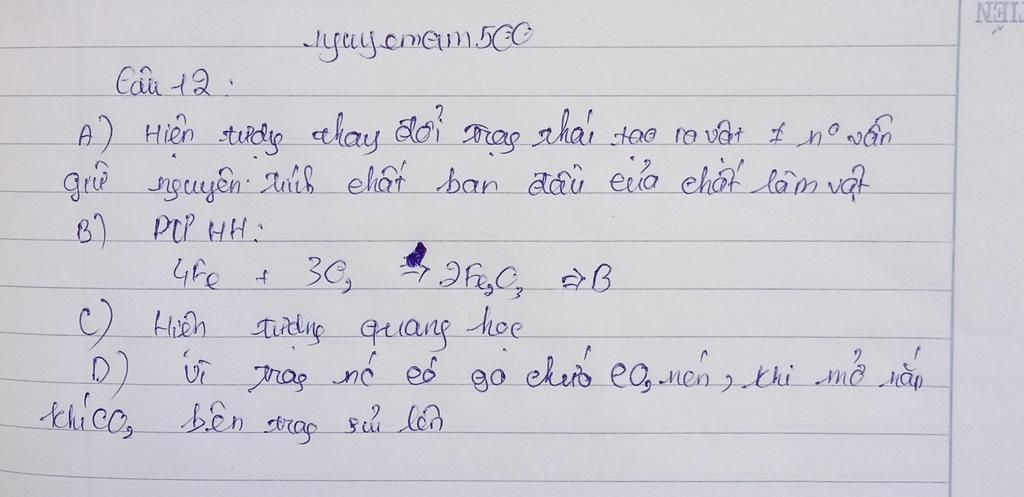 nguyenam.500
Câu 12:
A) Hiện tượng thay đổi trạg thái tạo ra vật ≠ nº vẫn
giữ nguyên tính chất ban đầu của chất làm vật
B) PT HH:
4Fe + 3O₂ ⇒ 2Fe₂O₃ ⇒ B
C) Hiện tượng quang học
D) Vì trog nó có ga chứa CO₂ nén, khi mở nắp
khí CO₂ bên trog sủi lên